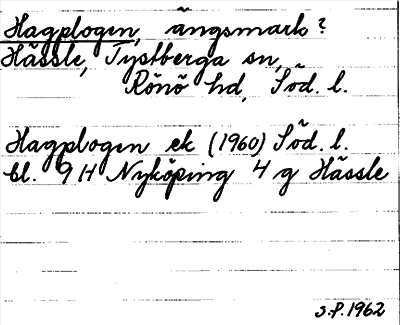 Hagplogen, ängsmark?
Hässle, Tystberga sn,
Rönö hd, Söd. l.
Hagplogen ek (1960) Söd. l.
bl. 9 H Nyköping 4 g Hässle
S.P. 1962